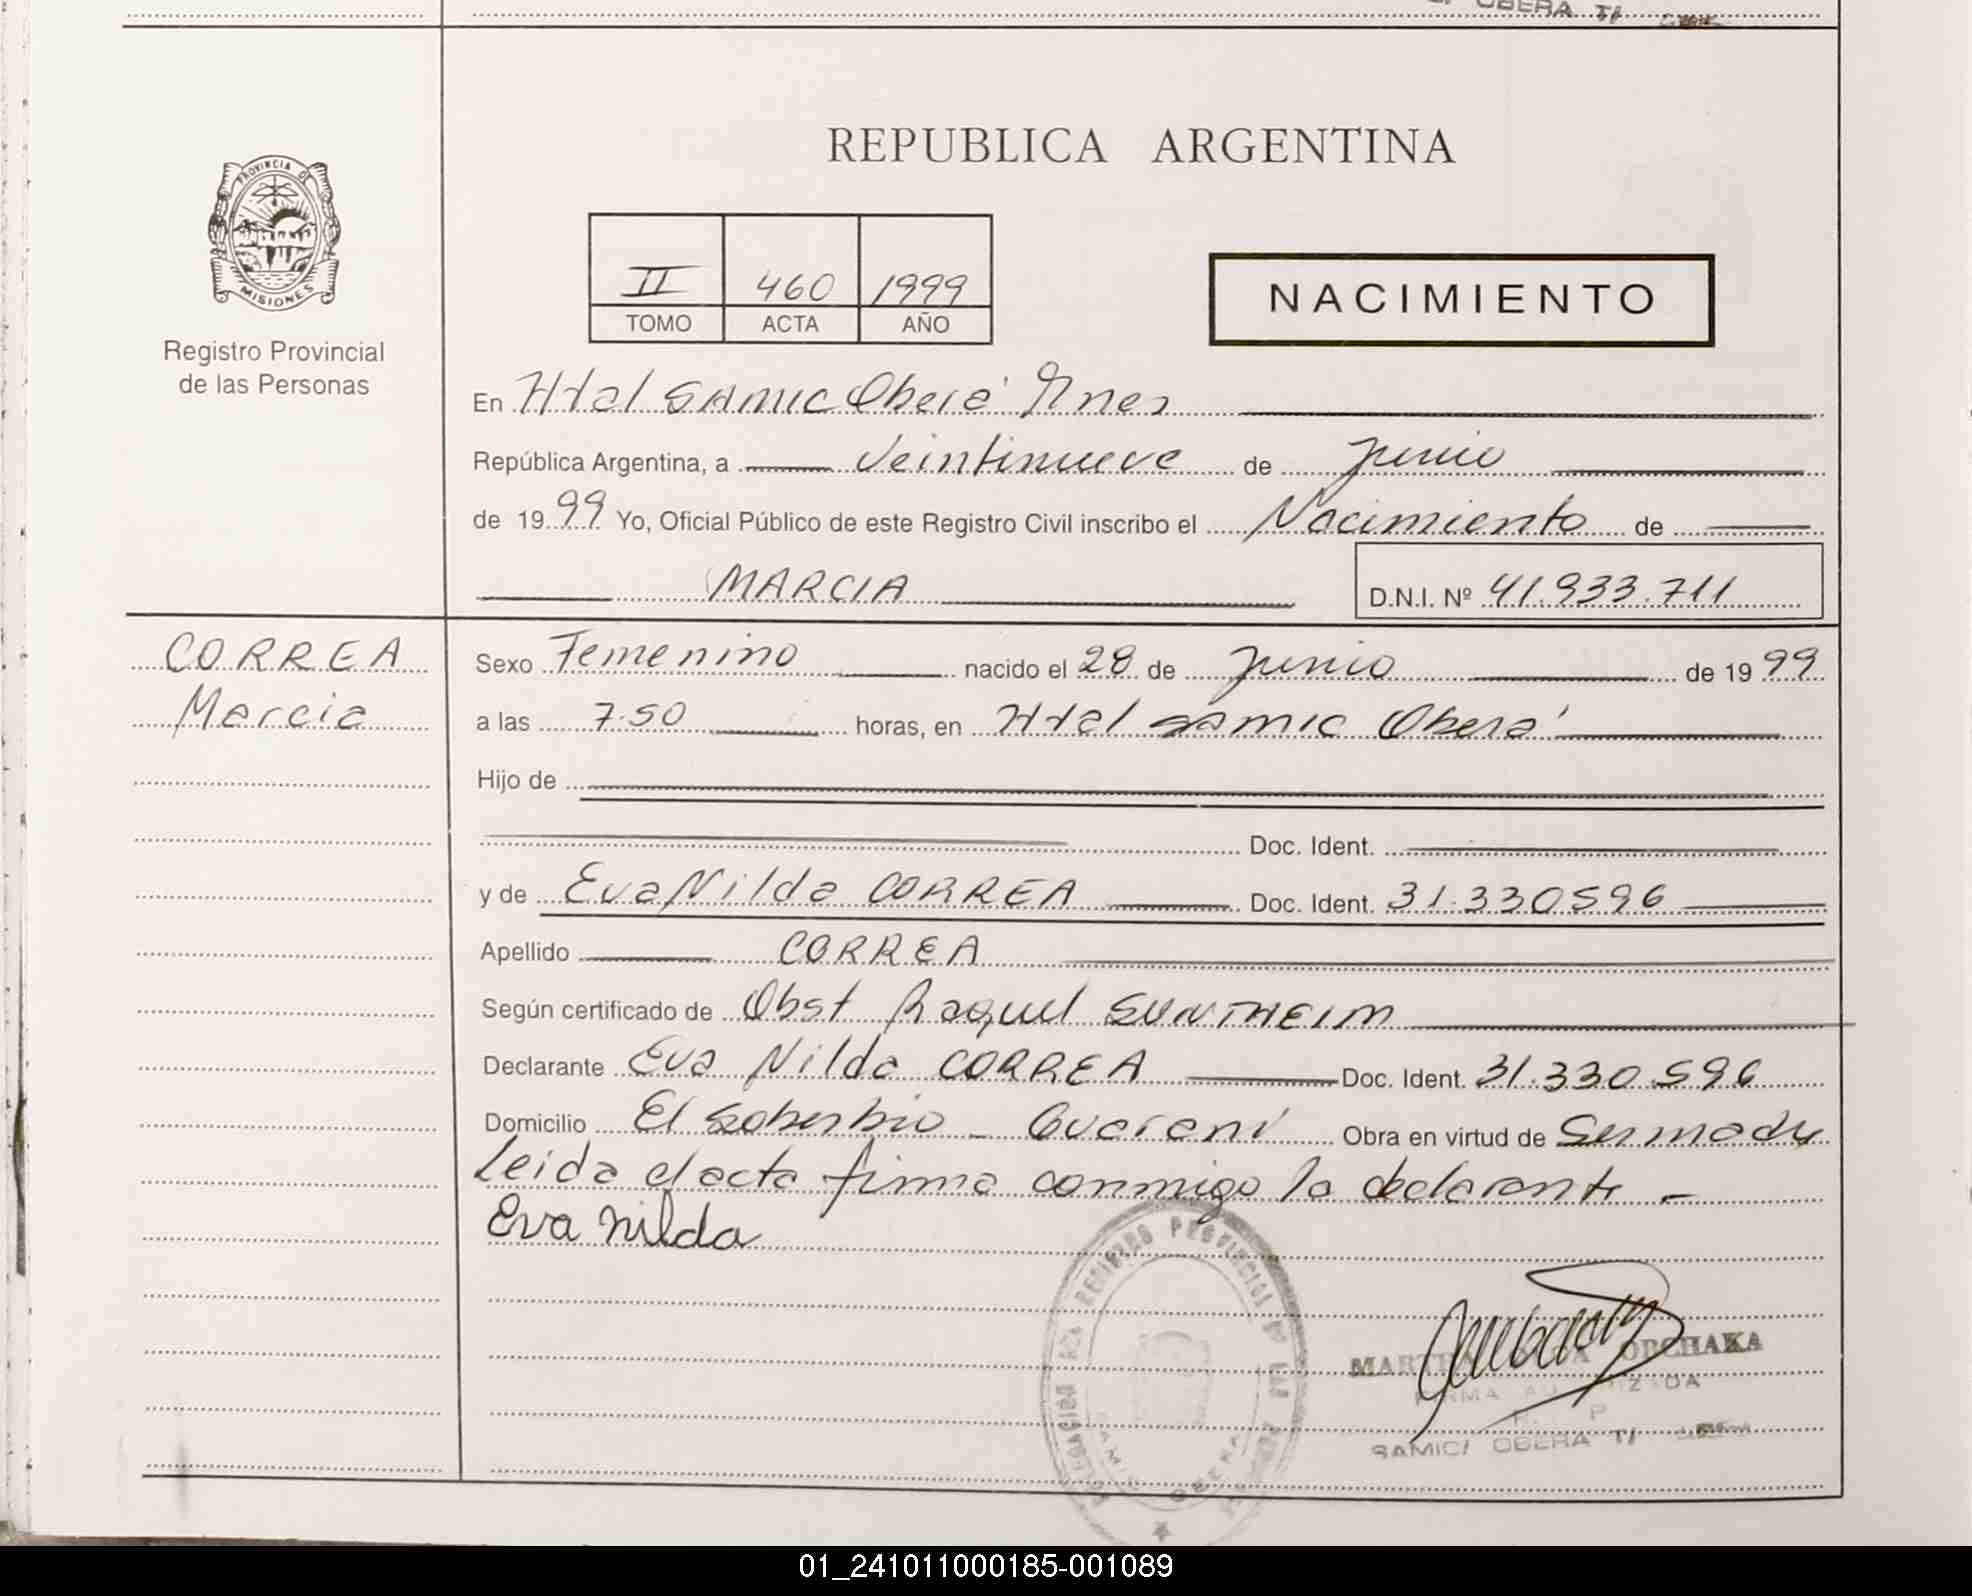 OBERA T/
REPUBLICA ARGENTINA
PROVINCIA DE
MISIONES
Registro Provincial
de las Personas
II 460 1999
TOMO ACTA AÑO
NACIMIENTO
En Htal SAMIC Oberá Mnes
República Argentina, a Veintinueve de Junio
de 19 99 Yo, Oficial Público de este Registro Civil inscribo el Nacimiento de
MARCIA D.N.I. Nº 41.933.711
CORREA
Marcia
Sexo Femenino nacido el 28 de Junio de 19 99
a las 7.50 horas, en Htal SAMIC Oberá
Hijo de
Doc. Ident.
y de Eva Nilda CORREA Doc. Ident. 31.330596
Apellido CORREA
Según certificado de Obst Raquel SUNTHEIM
Declarante Eva Nilda CORREA Doc. Ident. 31.330.596
Domicilio El Soberbio - Guaraní Obra en virtud de Ser madre
Leida el acta firma conmigo la declarante -
Eva nilda
REGISTRO PROVINCIAL DE LAS
OBERA
MARTHA ORCHAKA
FIRMA AUTORIZADA
R. P
SAMIC/ OBERA T/
01_241011000185-001089